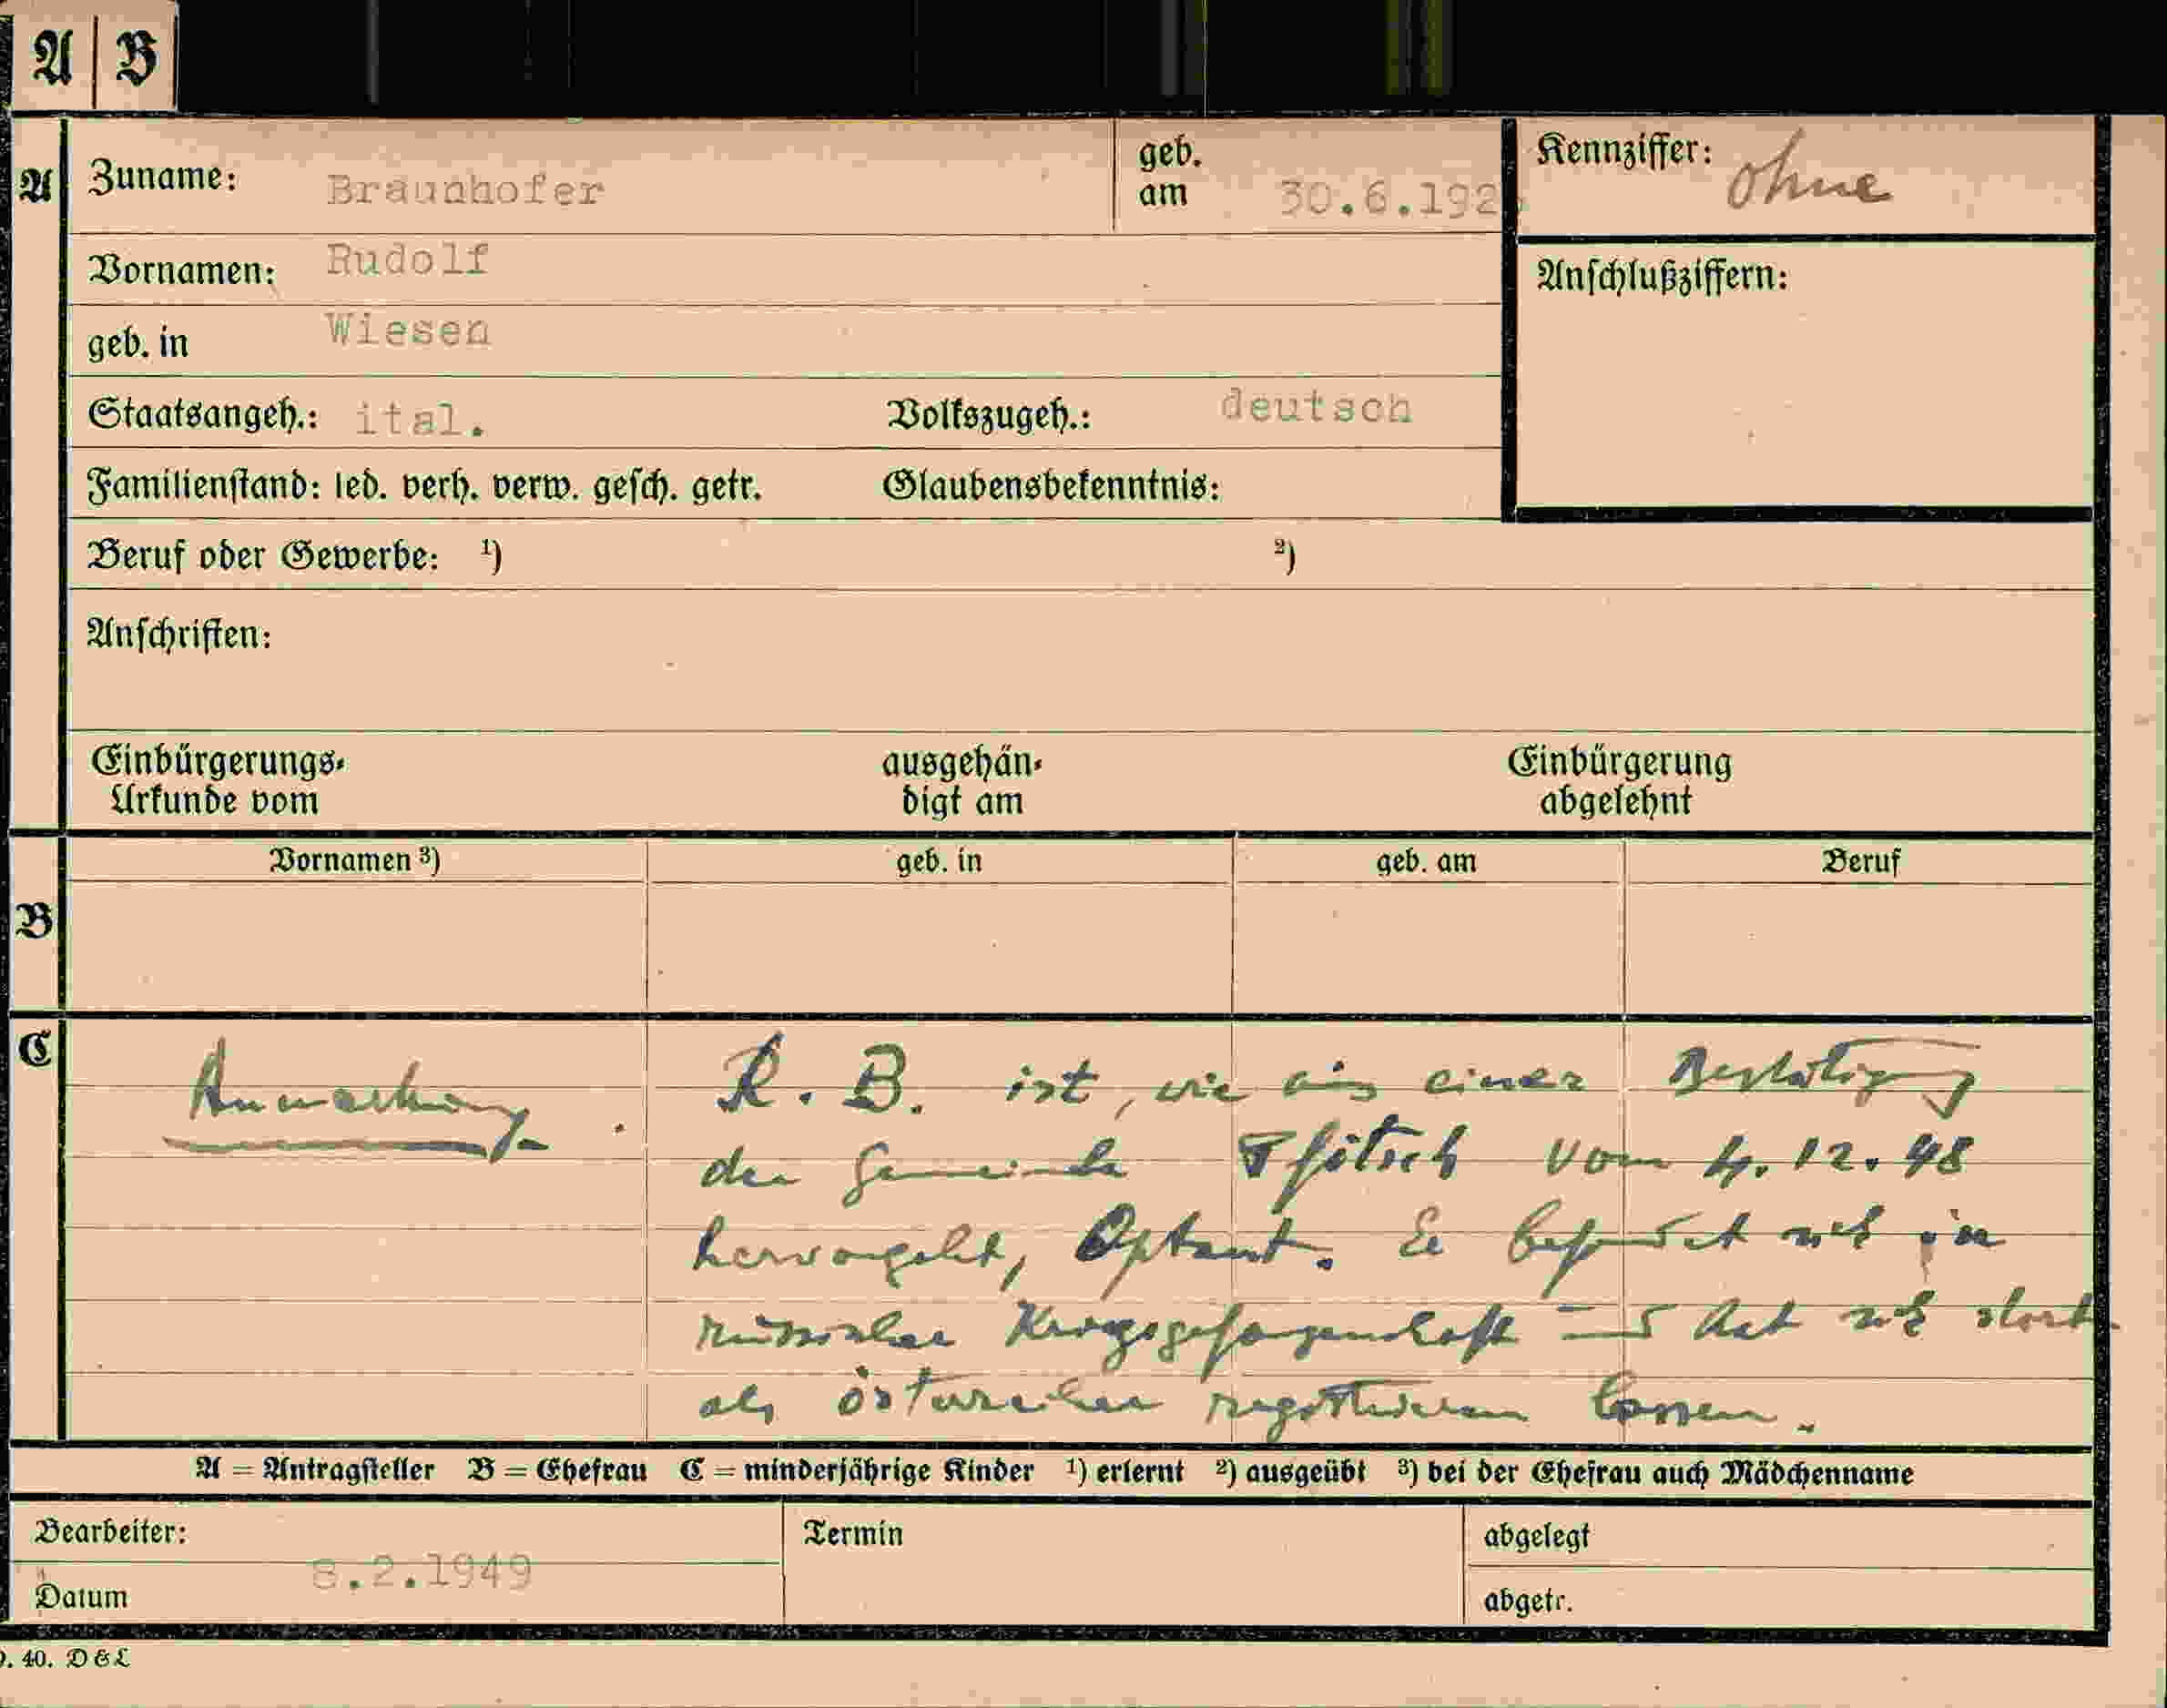 A B
A Zuname: Braunhofer geb. am 30.6.192 Kennziffer: ohne
Vornamen: Rudolf Anschlußziffern:
geb. in Wiesen
Staatsangeh.: ital. Volkszugeh.: deutsch
Familienstand: led. verh. verw. gesch. getr. Glaubensbekenntnis:
Beruf oder Gewerbe: ¹) ²)
Anschriften:
Einbürgerungs- ausgehän- Einbürgerung
Urkunde vom digt am abgelehnt
Vornamen ³) geb. in geb. am Beruf
B
C Anmerkung. R. B. ist, wie aus einer Bestätigung
der Gemeinde Pfitsch vom 4.12.48
hervorgeht, Optant. Er befindet sich in
russischer Kriegsgefangenschaft und hat sich dort
als Österreicher registrieren lassen.
A = Antragsteller B = Ehefrau C = minderjährige Kinder ¹) erlernt ²) ausgeübt ³) bei der Ehefrau auch Mädchenname
Bearbeiter: Termin abgelegt
Datum 8.2.1949 abgetr.
. 40. D & L